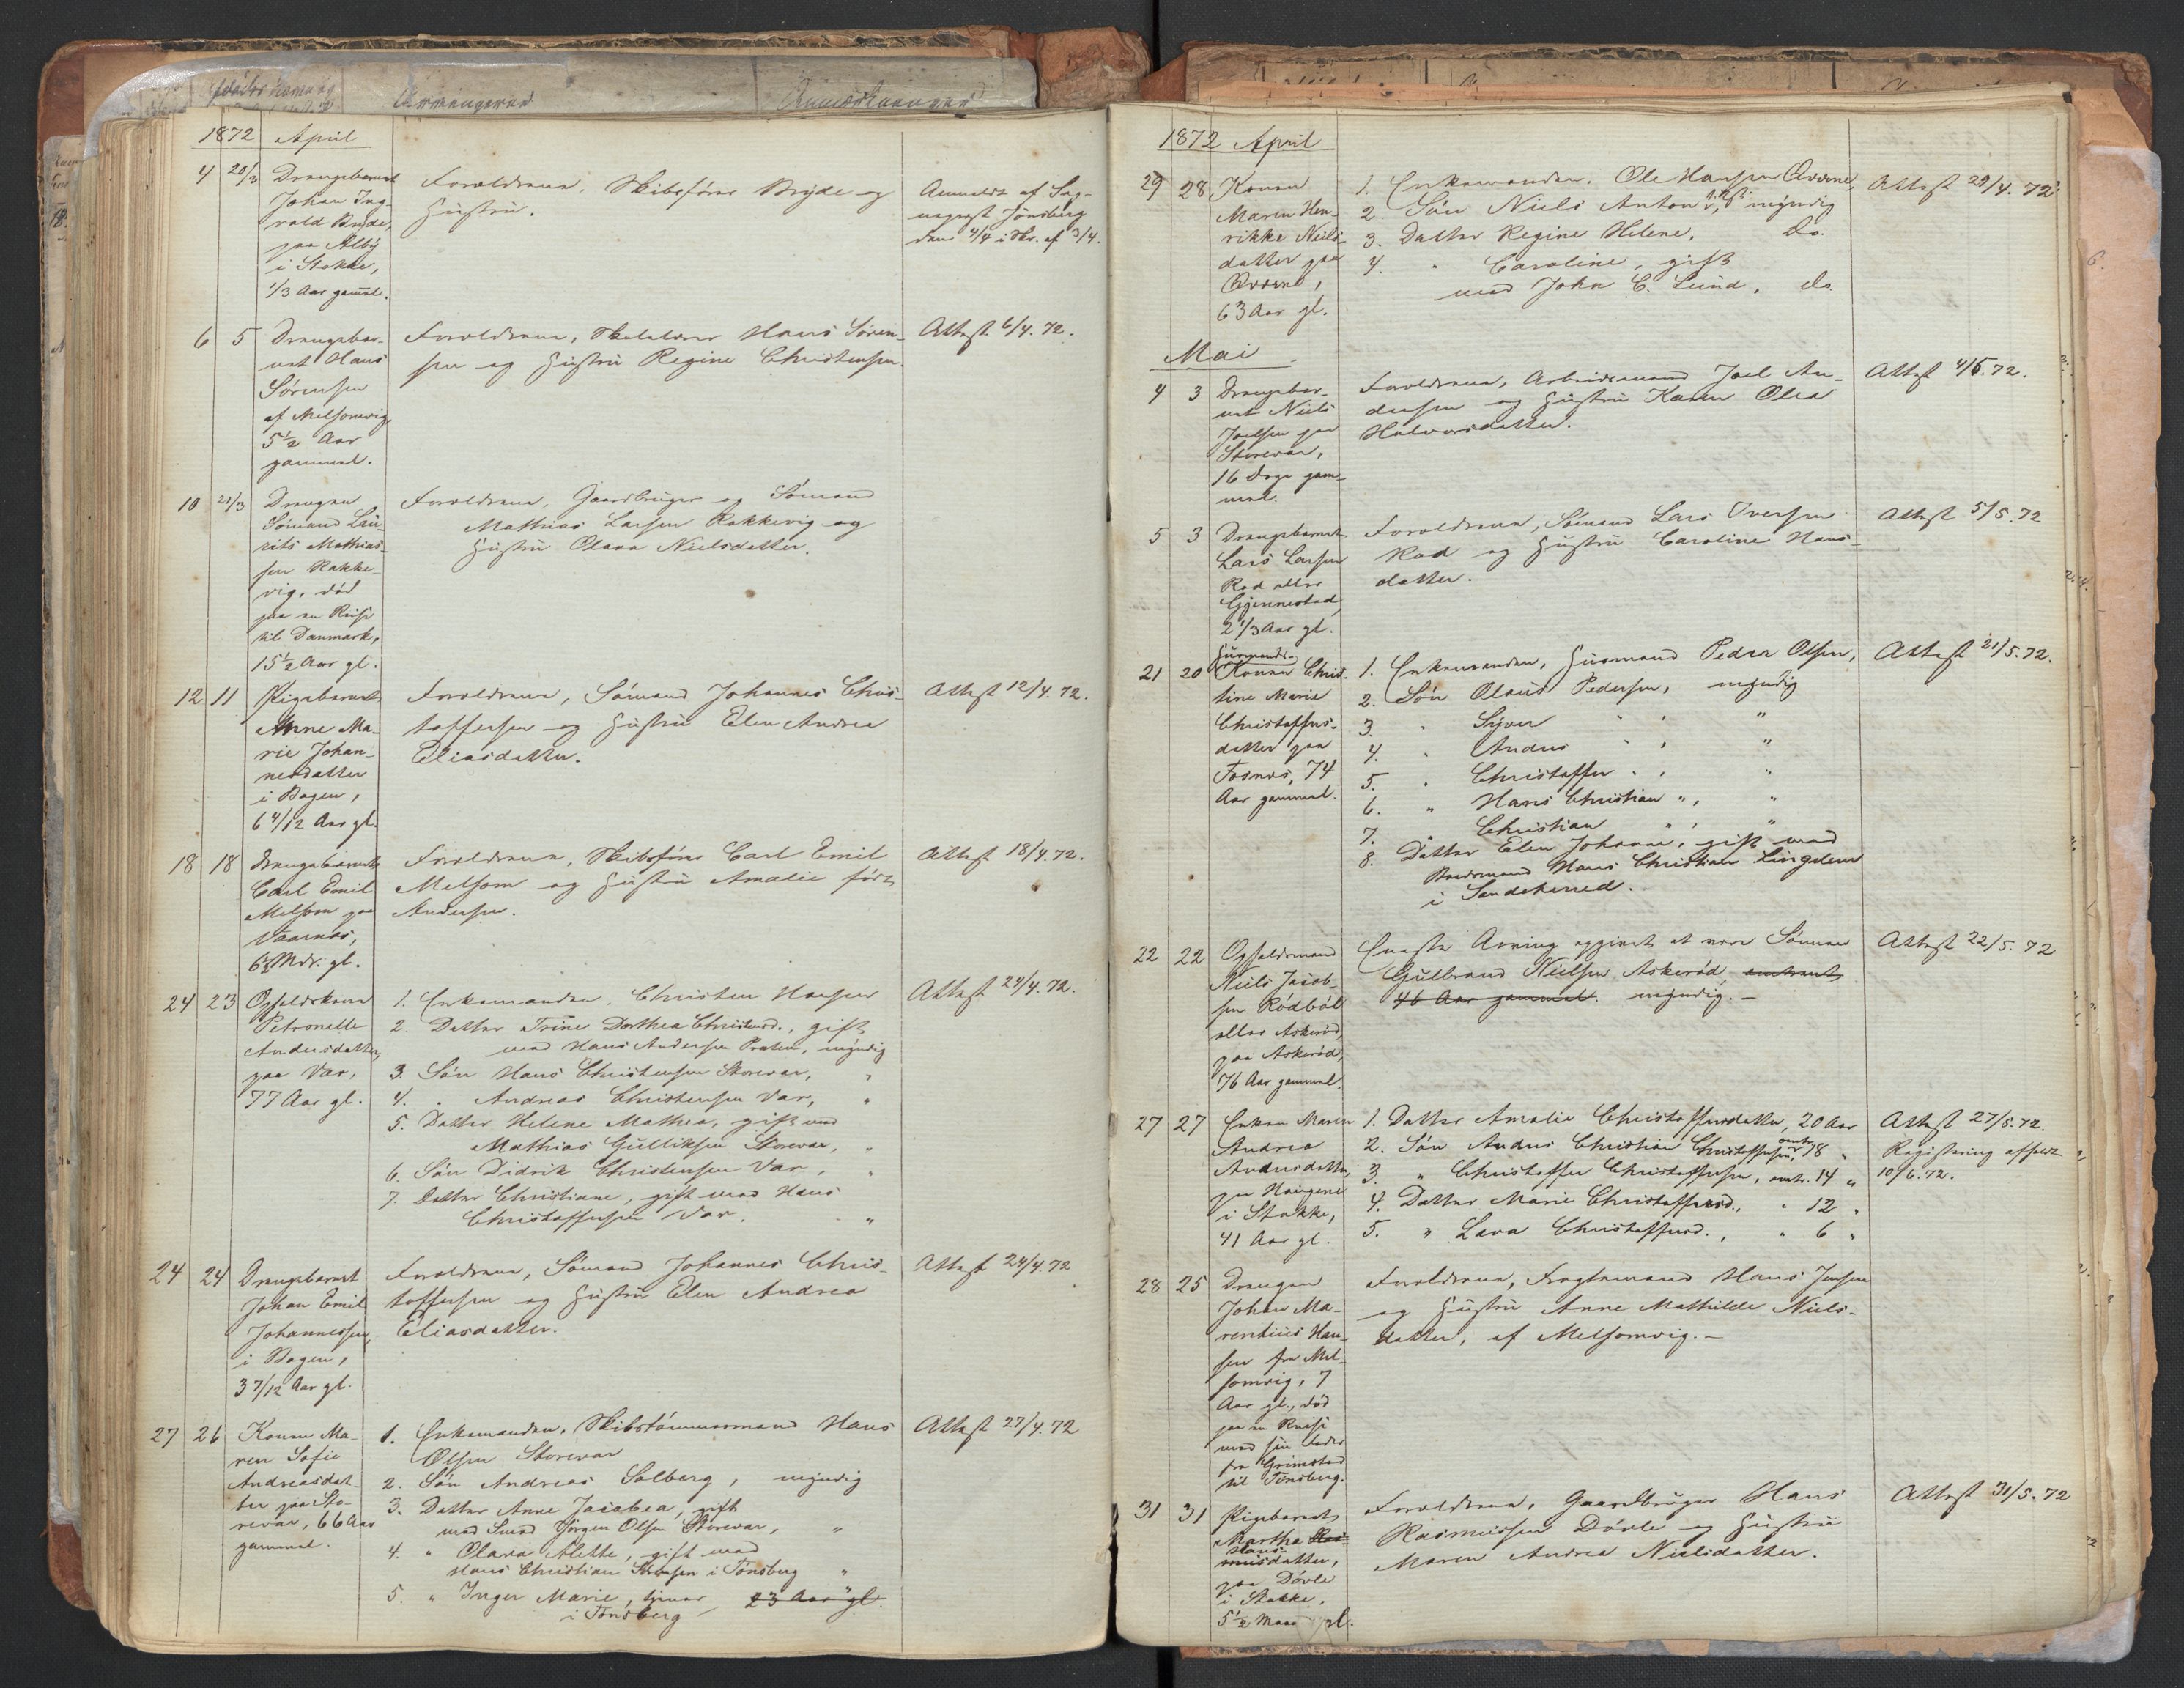 1872 April
4 20/3 Drengebarnet
Johan Ing-
vald Bryde,
paa Alby
i Stokke,
1/3 Aar gammel.
Forældrene, Skibsfører Bryde og
Hustru.
Anmeldt af Sog-
nepræst Jönsberg
den 4/4 i Skr. af 3/4.
6 5 Drengebar-
net Hans
Sørensen
af Melsomvig,
5½ Aar
gammel.
Forældrene, Skolelærer Hans Søren-
sen og Hustru Regine Christensen.
Attest 6/4. 72.
10 21/3 Drengen
Sømand Lau-
rits Mathias-
sen Rakke-
vig, død
paa en Reise
til Danmark,
15½ Aar gl.
Forældrene, Gaardbruger og Sømand
Mathias Larsen Rakkevig og
Hustru Olava Nielsdatter.
12 11 Pigebarnet
Anne Ma-
rie Johan-
nesdatter
i Bogen,
6 4/12 Aar gl.
Forældrene, Sømand Johannes Chris-
toffersen og Hustru Elen Andrea
Eliasdatter.
Attest 12/4. 72.
18 18 Drengebarnet
Carl Emil
Melsom paa
Vaarnæs,
6½ Mdr. gl.
Forældrene, Skibsfører Carl Emil
Melsom og Hustru Amalie født
Andersen.
Attest 18/4. 72.
24 23 Opholdskone
Petronelle
Andersdatter
paa Var,
77 Aar gl.
1. Enkemanden, Christen Hansen
2. Datter Trine Dorthea Christensd., gift
med Hans Andersen Praten, myndig
3. Søn Hans Christensen Storevar, "
4. " Andreas Christensen Var, "
5. Datter Helene Mathea, gift med
Mathias Gulliksen Storevar, "
6. Søn Didrik Christensen Var, "
7. Datter Christiane, gift med Hans
Christoffersen Var. "
Attest 24/4. 72.
24 24 Drengebarnet
Johan Emil
Johannessen,
i Bogen,
3 7/12 Aar gl.
Forældrene, Sømand Johannes Chris-
toffersen og Hustru Elen Andrea
Eliasdatter.
Attest 24/4. 72
27 26 Konen Ma-
ren Sofie
Andreasdat-
ter paa Sto-
revar, 66 Aar
gammel.
1. Enkemanden, Skibstømmermand Hans
Olsen Storevar
2. Søn Andreas Solberg, myndig
3. Datter Anne Jacobea, gift
med Smed Jörgen Olsen Storevar, "
4. " Olava Alette, gift med
Hans Christian i Tønsberg "
5. " Inger Marie, tjener 23 Aar gl.
i Tønsberg
Attest 27/4. 72
1872 April
29 28 Konen
Maren Hen-
rikke Niels-
datter paa
Qværne,
63 Aar gl.
1. Enkemanden, Ole Hansen Qværne,
2 Søn Niels Anton myndig
3. Datter Regine Helene, do.
4. " Caroline, gift
med John C. Lund, do.
Attest 29/4. 72.
Mai
4 3 Drengebar-
net Niels
Joelsen paa
Storevar,
16 Dage gam-
mel.
Forældrene, Arbeidsmand Joel An-
dersen og Hustru Karen Olea
Halvorsdatter.
Attest 4/5. 72.
5 3 Drengebarnet
Lars Larsen
Rød eller
Gjennestad,
2 1/3 Aar gl.
Forældrene, Sømand Lars Iversen
Rød og Hustru Caroline Hans-
datter.
Attest 5/5. 72
21 20 Husmands-
Konen Chris-
tine Marie
Christoffers-
datter paa
Fosnæs, 74
Aar gammel.
1. Enkemanden, Husmand Peder Olsen,
2. Søn Olaus Pedersen, myndig
3. " Syver " , "
4. " Anders " , "
5. " Christoffer " , "
6. " Hans Christian " , "
7. " Christian " , "
8. Datter Elen Johanne, gift med
Hans Christian Lingelem
i Sandeherred.
Attest 21/5. 72.
22 22 Opholdsmand
Niels Jacob-
sen Rödböl
eller Askeröd,
paa Askeröd,
76 Aar gammel.
Eneste Arving opgivet at være Sønnen
Gulbrand Nielsen Askeröd, omtrent
46 Aar gammel. myndig.-
Attest 22/5. 72
27 27 Enken Maren
Andrea
Andersdatter,
paa Haugene
i Stokke,
41 Aar gl.
1. Datter Amalie Christoffersdatter, 20 Aar
2. Søn Anders Christian Christoffersen, omtr. 18 "
3. " Christoffer Christoffersen, omtr. 14 "
4. Datter Marie Christoffersd., " 12 "
5. " Lava Christoffersd., " 6 "
Attest 27/5. 72.
Registrering afholdt
10/6. 72.
28 25 Drengen
Johan Ma-
rentius Han-
sen fra Mel-
somvig, 7
Aar gl., død
paa en Reise
med sin Fader
fra Grimstad
til Tönsberg.
Forældrene, Fragtemand Hans Jensen
og Hustru Anne Mathilde Niels-
datter, af Melsomvig.-
31 31 Pigebarnet
Martha Ras-
Hans-
musdatter,
paa Dövle
i Stokke,
5½ Maan gl.
Forældrene, Gaardbruger Hans
Rasmussen Dövle og Hustru
Maren Andrea Nielsdatter.
Attest 31/5. 72